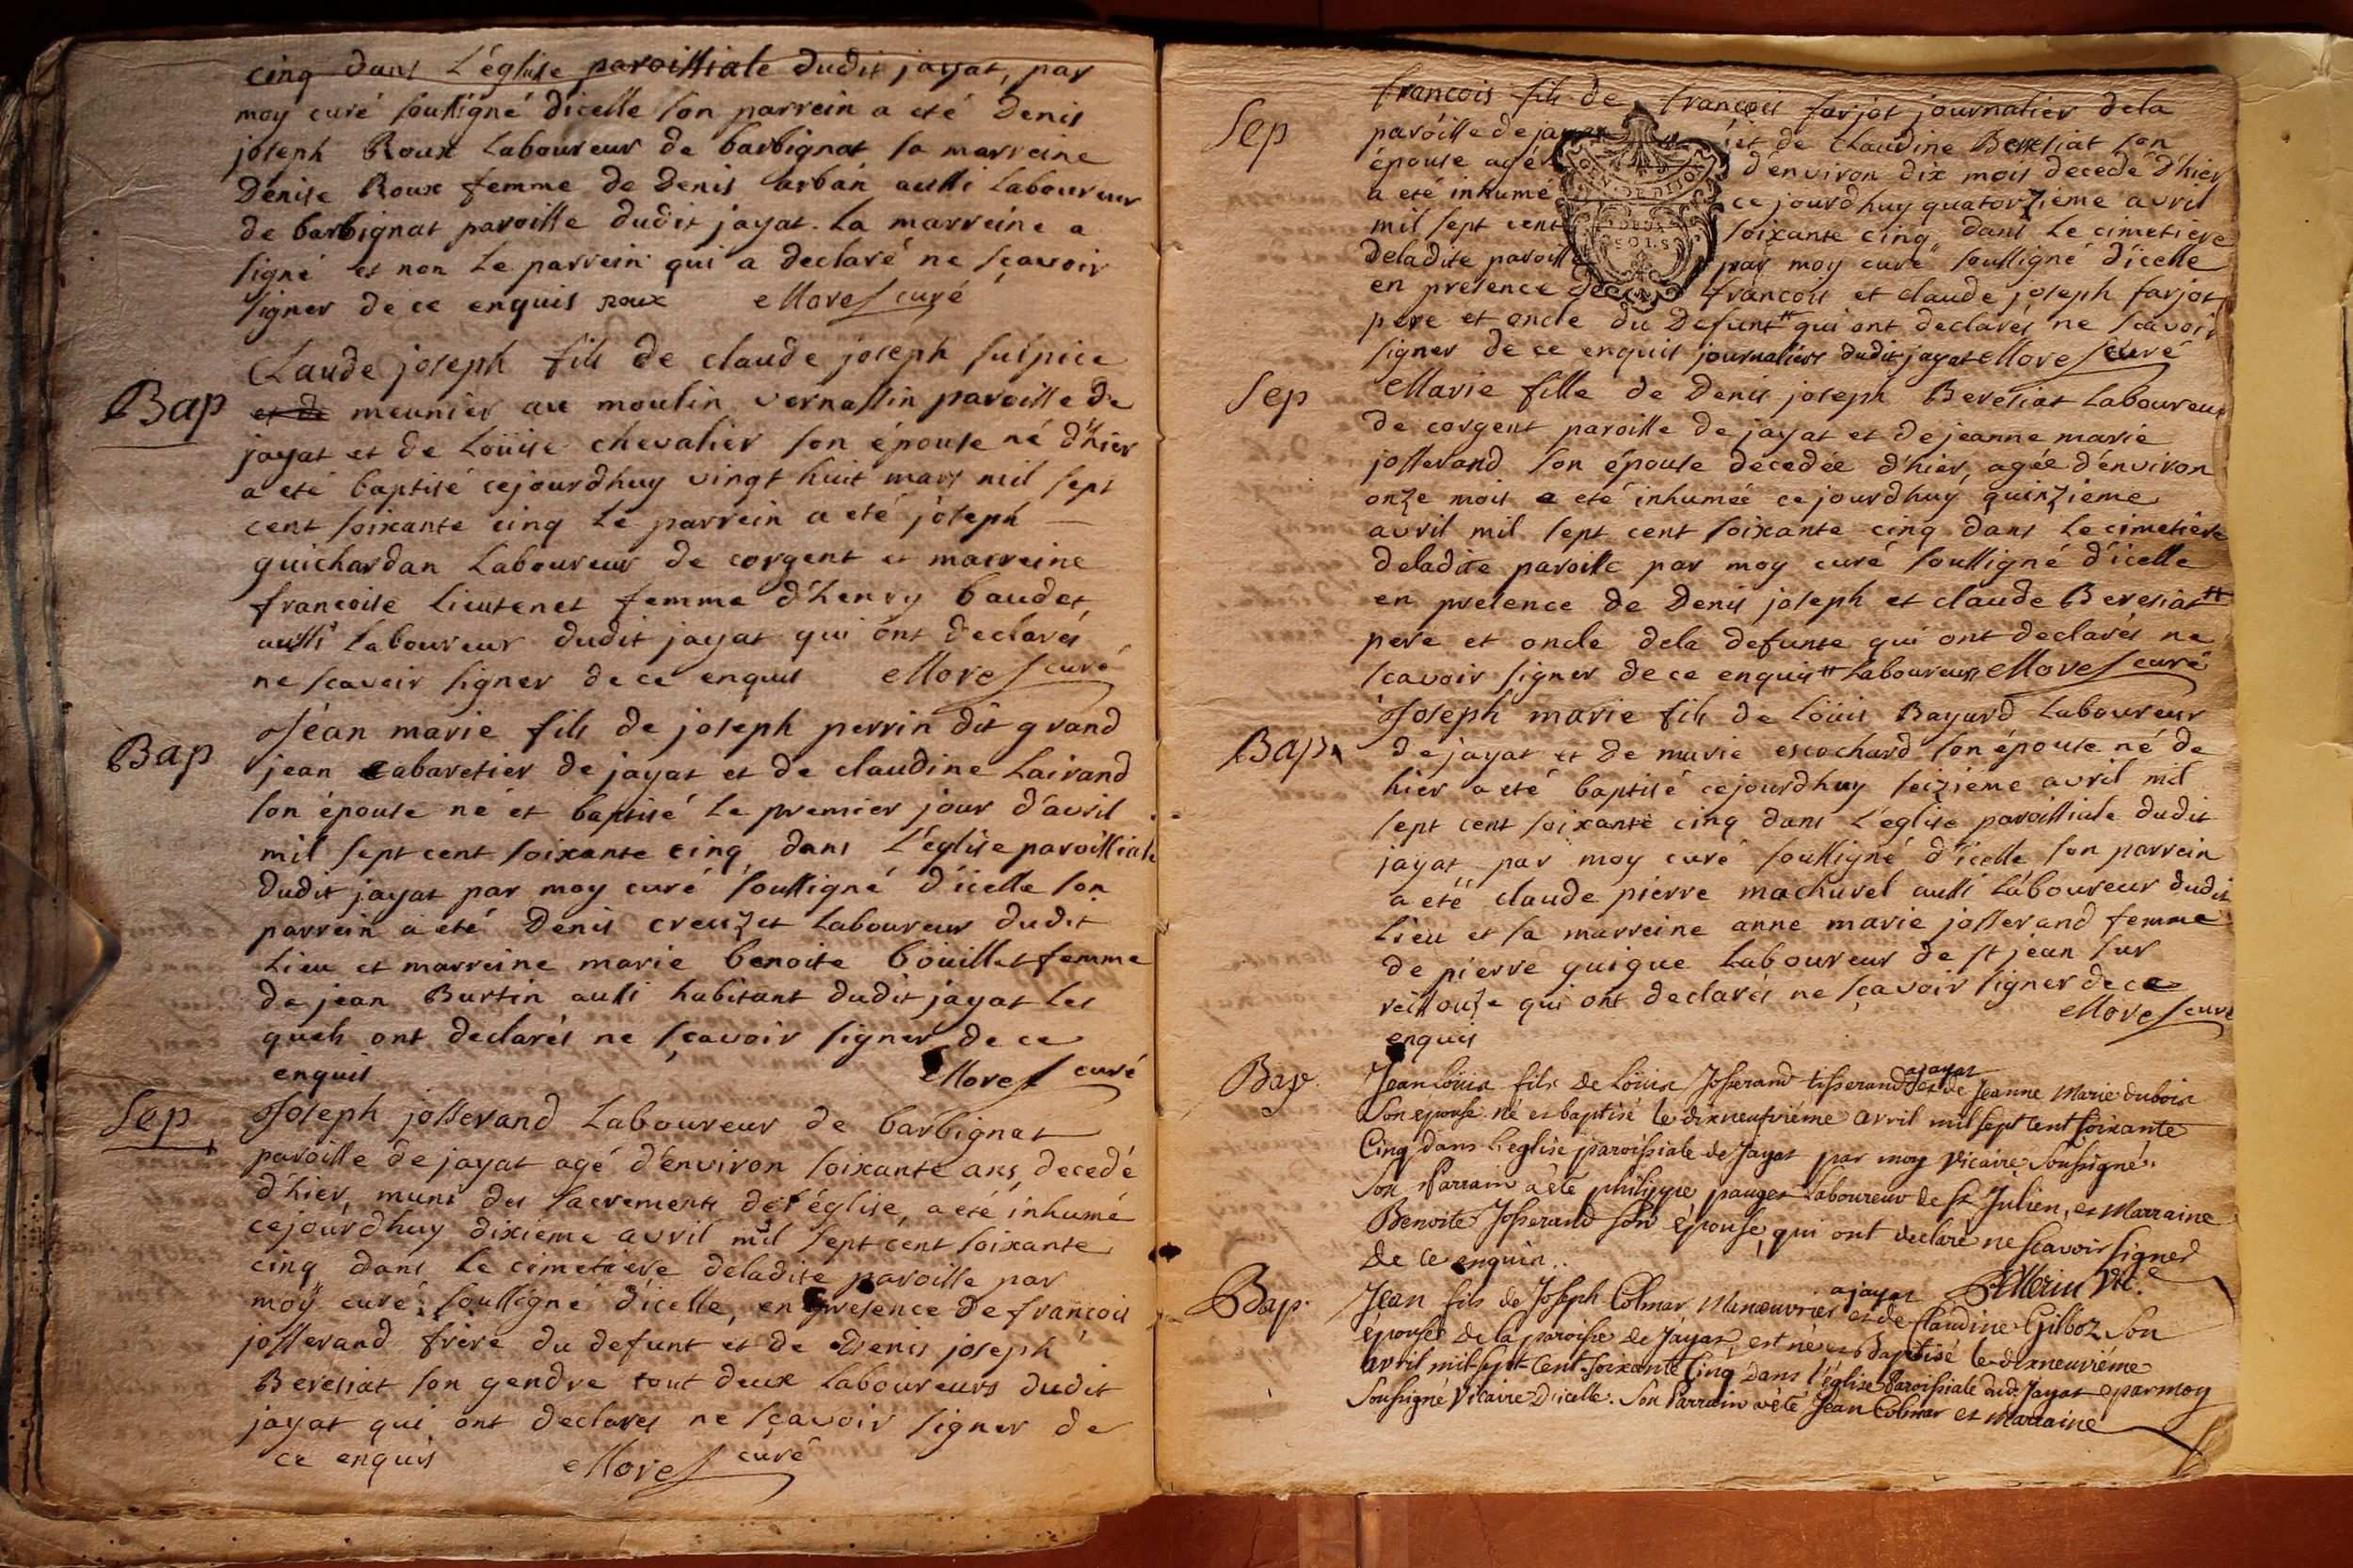 cinq dans L'église paroissiale dudit jayat, par
moy curé soussigné d'icelle son parrein a eté Denis
joseph Roux Laboureur de barbignat sa marreine
Denise Roux femme de Denis arban aussi Laboureur
de barbignat paroisse dudit jayat. La marreine a
signé et non Le parrein qui a declaré ne sçavoir
signer de ce enquis roux Morel curé
Bap
Claude joseph fils de claude joseph sulpice
et de meunier au moulin vernassin paroisse de
jayat et de Loüise chevalier son épouse né d'hier
a eté baptisé cejourdhuy vingt huit mars mil sept
cent soixante cinq Le parrein a eté joseph
guichardan Laboureur de corgent et marreine
francoise lieutenet femme d'henry baudet
aussi Laboureur dudit jayat qui ont declarés
ne scavoir signer de ce enquis Morel curé
Bap
Jean marie fils de joseph perrin dit grand
jean cabaretier de jayat et de claudine Lairand
son épouse né et baptisé Le premier jour d'avril
mil sept cent soixante cinq dans L'église paroissiale
dudit jayat par moy curé soussigné d'icelle son
parrein a eté Denis creuzet Laboureur dudit
Lieu et marreine marie benoite boüillet femme
de jean Burtin aussi habitant dudit jayat Les
quels ont declarés ne sçavoir signer de ce
enquis Morel curé
Sep
Joseph josserand Laboureur de barbignat
paroisse de jayat agé d'environ soixante ans, decedé
d'hier, muni des sacrements de l'église, a eté inhumé
cejourdhuy dixieme avril mil sept cent soixante
cinq dans Le cimetiere deladite paroisse par
moy curé soussigné d'icelle, en presence de françois
josserand frère du defunt et de Denis joseph
Beresiat son gendre tout deux Laboureurs dudit
jayat qui ont declarés ne sçavoir signer de
ce enquis Morel curé
Sep
francois fils de francois farjot journalier dela
paroisse de jayat et de claudine Beresiat son
épouse agé d'environ dix mois decedé d'hier
a eté inhumé ce jourdhuy quatorzieme avril
mil sept cent soixante cinq dans Le cimetiere
deladite paroisse par moy curé soussigné d'icelle
en presence de francois et claude joseph farjot
pere et oncle du Defunt # qui ont declarés ne scavoir
signer de ce enquis journaliers dudit jayat Morel curé
GEN. DE DIJON
DEUX
SOLS
Sep
Marie fille de Denis joseph Beresiat Laboureur
de corgent paroisse de jayat et de jeanne marie
josserand son épouse decedée d'hier, agée d'environ
onze mois a eté inhumée cejourdhuy quinzieme
avril mil sept cent soixante cinq dans Le cimetière
deladite paroisse par moy curé soussigné d'icelle
en presence de Denis joseph et claude Beresiat #
pere et oncle dela defunte qui ont declarés ne
scavoir signer de ce enquis # Laboureurs Morel curé
Bap
Joseph marie fils de Loüis Bayard Laboureur
de jayat et de marie escochard son épouse né de
hier a eté baptisé cejourdhuy seizieme avril mil
sept cent soixante cinq dans L'église paroissiale dudit
jayat par moy curé soussigné d'icelle son parrein
a eté claude pierre machurel aussi Laboureur dudit
Lieu et sa marreine anne marie josserand femme
de pierre guigue Laboureur de st jean sur
reissouze qui ont declarés ne sçavoir signer de ce
enquis Morel curé
Bap.
Jean Loüis fils de Loüis Josserand tisserand a jayat et de Jeanne Marie dubois
Son epouse né et baptisé le dixneufviéme avril mil sept cent soixante
Cinq dans l'eglise paroissiale de Jayat par moy Vicaire Soussigné.
Son Parrain a été philippe pauget Laboureur de St Julien, et Marraine
Benoite Josserand son épouse, qui ont declaré ne scavoir signer
de ce enquis.. Merin Vic.e
Bap.
Jean fils de Joseph Colmar Manoeuvrier a jayat et de Claudine Gilboz Son
épouse de la paroisse de Jayat, est né et Baptisé le dixneuviéme
avril mil sept cent soixante Cinq dans l'église Paroissiale dud. Jayat par moy
Soussigné Vicaire D'icelle. Son Parrain a été Jean Colmar et Marraine